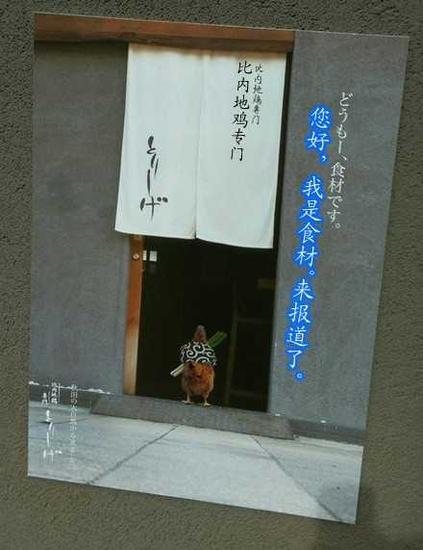 どうもー、食材です。
您好，我是食材。来报道了。
比内地鶏専门
比内地鸡专门
とりしげ
比内地鶏
専門
とりしげ